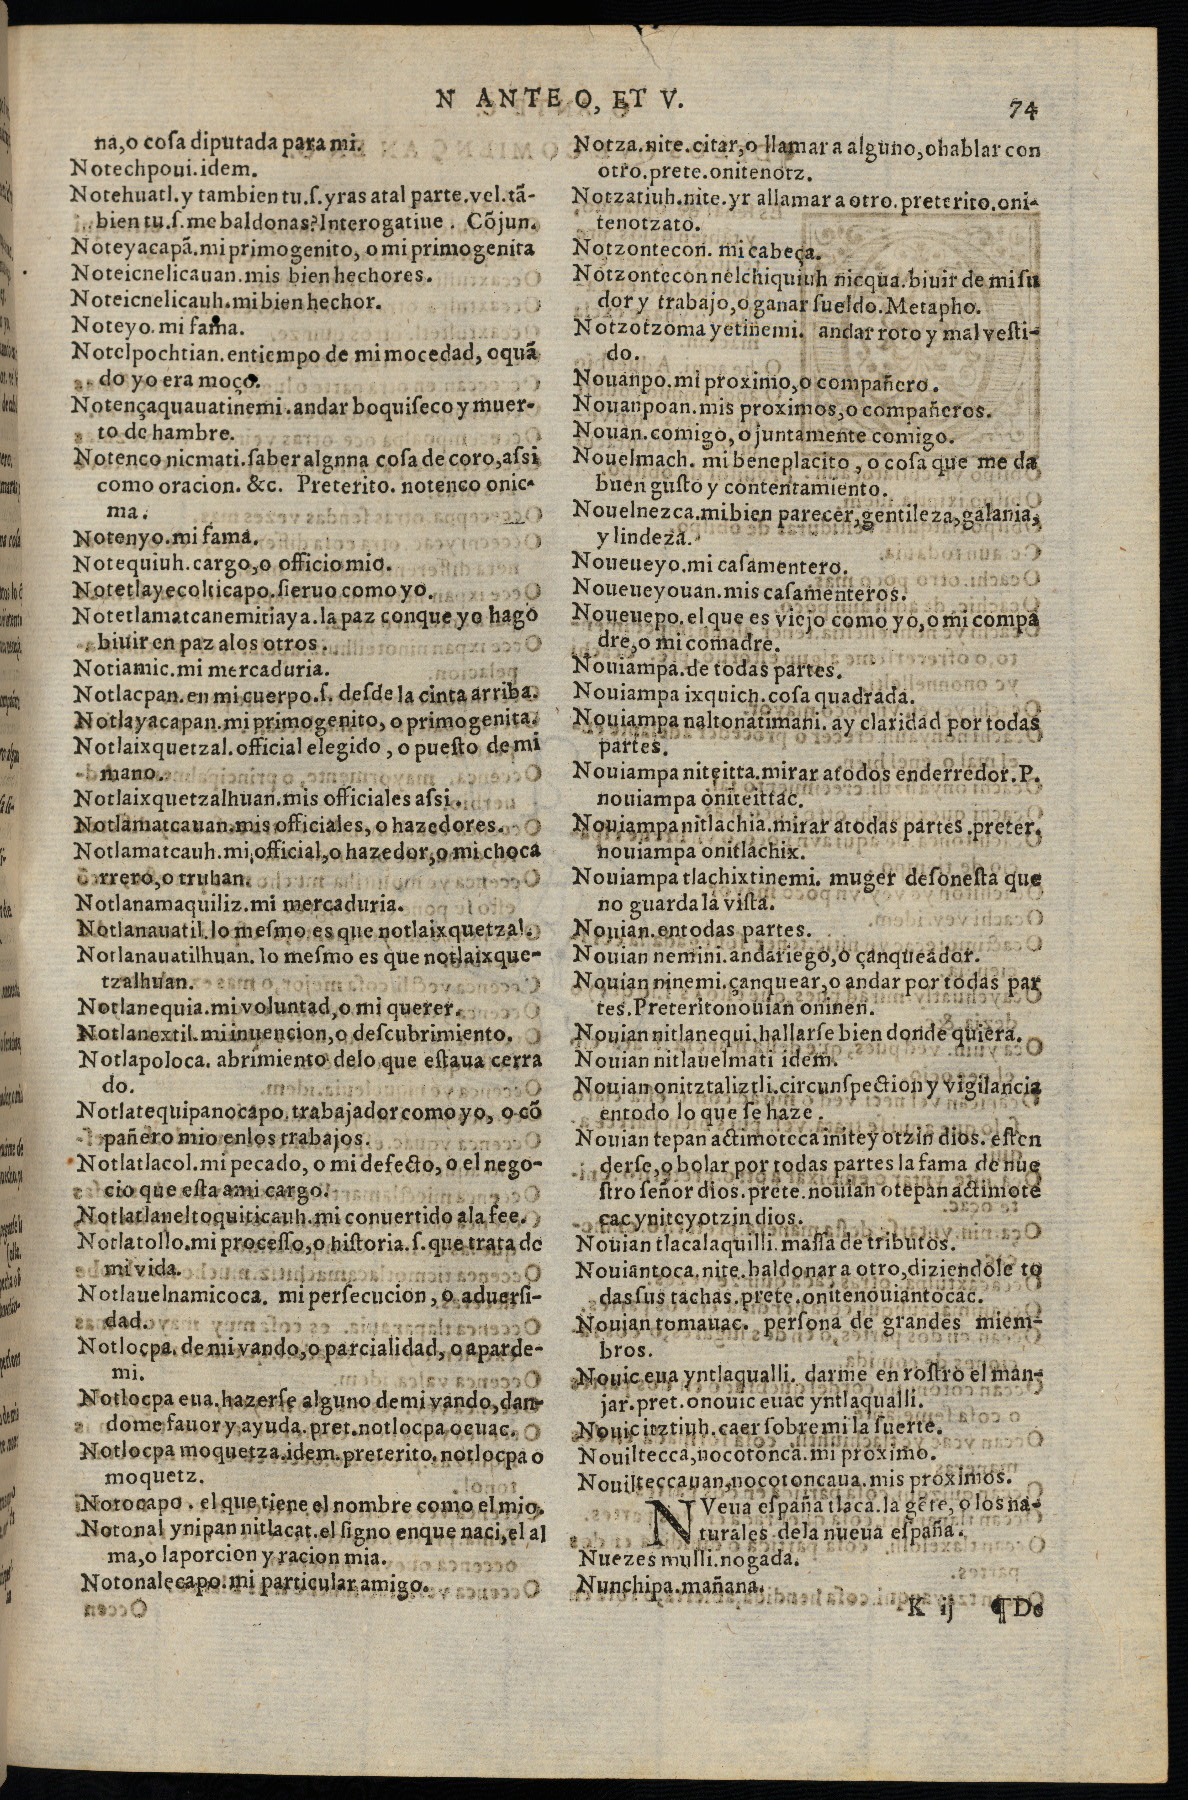 N ANTE O, ET V.
74
na,o coſa diputada para mi.
Notechpoui.idem.
Notehuatl.y tambien tu.ſ.yras atal parte.vel.tã-
bien tu.ſ.me baldonas?Interogatiue . Cõjun.
Noteyacapã.mi primogenito, o mi primogenita
Noteicnelicauan.mis bien hechores.
Noteicnelicauh.mi bien hechor.
Noteyo.mi fama.
Notelpochtian.entiempo de mi mocedad, oquã
do yo era moço.
Notençaquauatinemi.andar boquiſeco y muer-
to de hambre.
Notenco nicmati.ſaber algnna coſa de coro,aſsi
como oracion.&c. Preterito. notenco onic-
ma.
Notenyo.mi fama.
Notequiuh.cargo,o officio mio.
Notetlayecolticapo.ſieruo como yo.
Notetlamatcanemitiaya.la paz conque yo hago
biuir en paz alos otros.
Notiamic.mi mercaduria.
Notlacpan.en mi cuerpo.ſ. deſde la cinta arriba.
Notlayacapan.mi primogenito, o primogenita.
Notlaixquetzal.official elegido , o pueſto de mi
mano.
Notlaixquetzalhuan.mis officiales aſsi.
Notlamatcauan.mis officiales, o hazedores.
Notlamatcauh.mi official,o hazedor,o mi choca
rrero,o truhan.
Notlanamaquiliz.mi mercaduria.
Notlanauatil.lo meſmo es que notlaixquetzal.
Notlanauatilhuan.lo meſmo es que notlaixque-
tzalhuan.
Notlanequia.mi voluntad,o mi querer.
Notlanextil.mi inuencion,o deſcubrimiento.
Notlapoloca. abrimiento delo que eſtaua cerra
do.
Notlatequipanocapo.trabajador como yo, o cõ
pañero mio enlos trabajos.
Notlatlacol.mi pecado, o mi defecto, o el nego-
cio que eſta ami cargo.
Notlatlaneltoquiticauh.mi conuertido ala fee.
Notlatollo.mi proceſſo,o hiſtoria.ſ.que trata de
mi vida.
Notlauelnamicoca. mi perſecucion, o aduerſi-
dad.
Notlocpa.de mi vando,o parcialidad, o aparde-
mi.
Notlocpa eua.hazerſe alguno demi vando,dan-
dome fauor y ayuda.pret.notlocpa oeuac.
Notlocpa moquetza.idem.preterito.notlocpa o
moquetz.
Notocapo. el que tiene el nombre como el mio.
Notonal ynipan nitlacat.el ſigno enque naci,el al
ma,o laporcion y racion mia.
Notonalecapo.mi particular amigo.
Notza.nite.citar,o llamar a alguno,ohablar con
otro.prete.onitenotz.
Notzatiuh.nite.yr allamar a otro.preterito.oni-
tenotzato.
Notzontecon. mi cabeça.
Notzontecon nelchiquiuh nicqua.biuir de mi ſu
dor y trabajo,o ganar ſueldo.Metapho.
Notzotzoma yetinemi. andar roto y mal veſti-
do.
Nouanpo.mi proximo,o compañero.
Nouanpoan.mis proximos,o compañeros.
Nouan.comigo,o juntamente comigo.
Nouelmach. mi beneplacito , o coſa que me da
buen guſto y contentamiento.
Nouelnezca.mi bien parecer,gentileza,galania,
y lindeza.
Noueueyo.mi caſamentero.
Noueueyouan.mis caſamenteros.
Noueuepo.el que es viejo como yo,o mi compa
dre,o mi comadre.
Nouiampa.de todas partes.
Nouiampa ixquich.coſa quadrada.
Nouiampa naltonatimani.ay claridad por todas
partes.
Nouiampa niteitta.mirar atodos enderredor.P.
nouiampa oniteittac.
Nouiampa nitlachia.mirar atodas partes.preter.
nouiampa onitlachix.
Nouiampa tlachixtinemi. muger deſoneſta que
no guarda la viſta.
Nouian.entodas partes.
Nouian nemini.andariego,o çanqueador.
Nouian ninemi.çanquear,o andar por todas par
tes.Preteritonouian oninen.
Nouian nitlanequi.hallarſe bien donde quiera.
Nouian nitlauelmati idem.
Nouian onitztaliztli.circunſpection y vigilancia
entodo lo que ſe haze.
Nouian tepan actimoteca initeyotzin dios. eſten
derſe,o bolar por todas partes la fama de nue
ſtro ſeñor dios.prete.nouian otepan actimote
cac yniteyotzin dios.
Nouian tlacalaquilli.maſſa de tributos.
Nouiantoca.nite.baldonar a otro,diziendole to
das ſus tachas.prete.onitenouiantocac.
Nouian tomauac. perſona de grandes miem-
bros.
Nouic eua yntlaqualli. darme en roſtro el man-
jar.pret.onouic euac yntlaqualli.
Nouic itztiuh.caer ſobre mi la ſuerte.
Nouiltecca,nocotonca.mi proximo.
Nouilteccauan,nocotoncaua.mis proximos.
NVeua eſpaña tlaca.la gẽte, o los na-
turales dela nueua eſpaña.
Nuezes mulli.nogada.
Nunchipa.mañana.
K ij ¶De